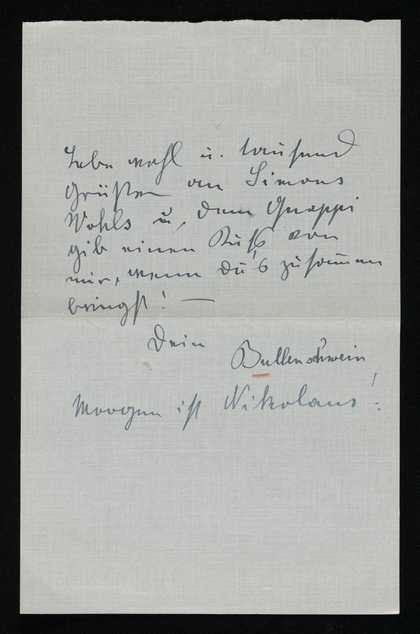 Lebe wohl u. tausend
Grüßen an Simons
Wohls u. dem Quappi
gib einen Kuß von
mir, wenn du's zusammen
bringst! —
Dein
Bullenschwein
Morgen ist Nikolaus!